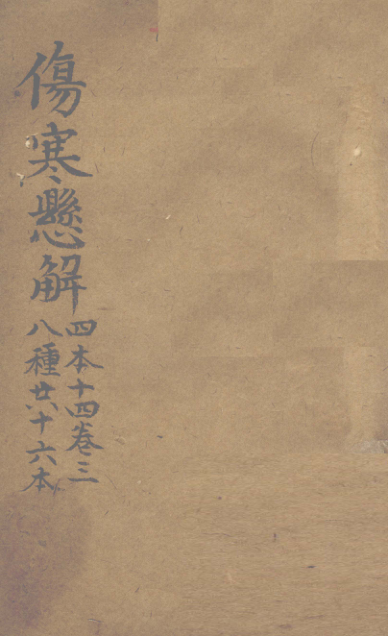 傷寒懸解
四本十四卷三
八種廿六十六本